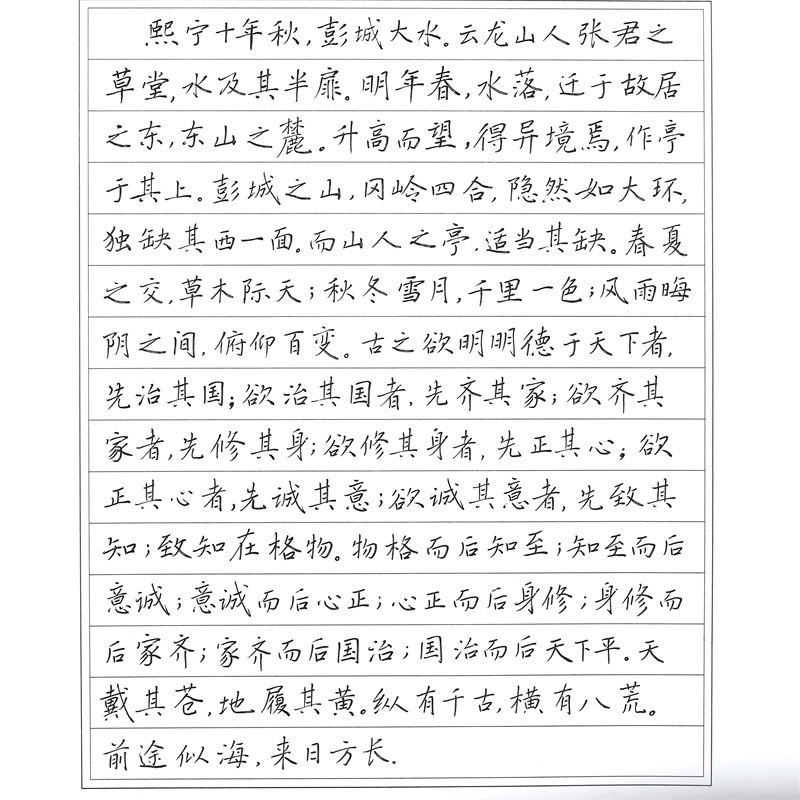 熙宁十年秋,彭城大水。云龙山人张君之
草堂,水及其半扉。明年春,水落,迁于故居
之东,东山之麓。升高而望,得异境焉,作亭
于其上。彭城之山,冈岭四合,隐然如大环,
独缺其西一面。而山人之亭,适当其缺。春夏
之交,草木际天;秋冬雪月,千里一色;风雨晦
阴之间,俯仰百变。古之欲明明德于天下者,
先治其国;欲治其国者,先齐其家;欲齐其
家者,先修其身;欲修其身者,先正其心;欲
正其心者,先诚其意;欲诚其意者,先致其
知;致知在格物。物格而后知至;知至而后
意诚;意诚而后心正;心正而后身修;身修而
后家齐;家齐而后国治;国治而后天下平。天
戴其苍,地履其黄。纵有千古,横有八荒。
前途似海,来日方长.